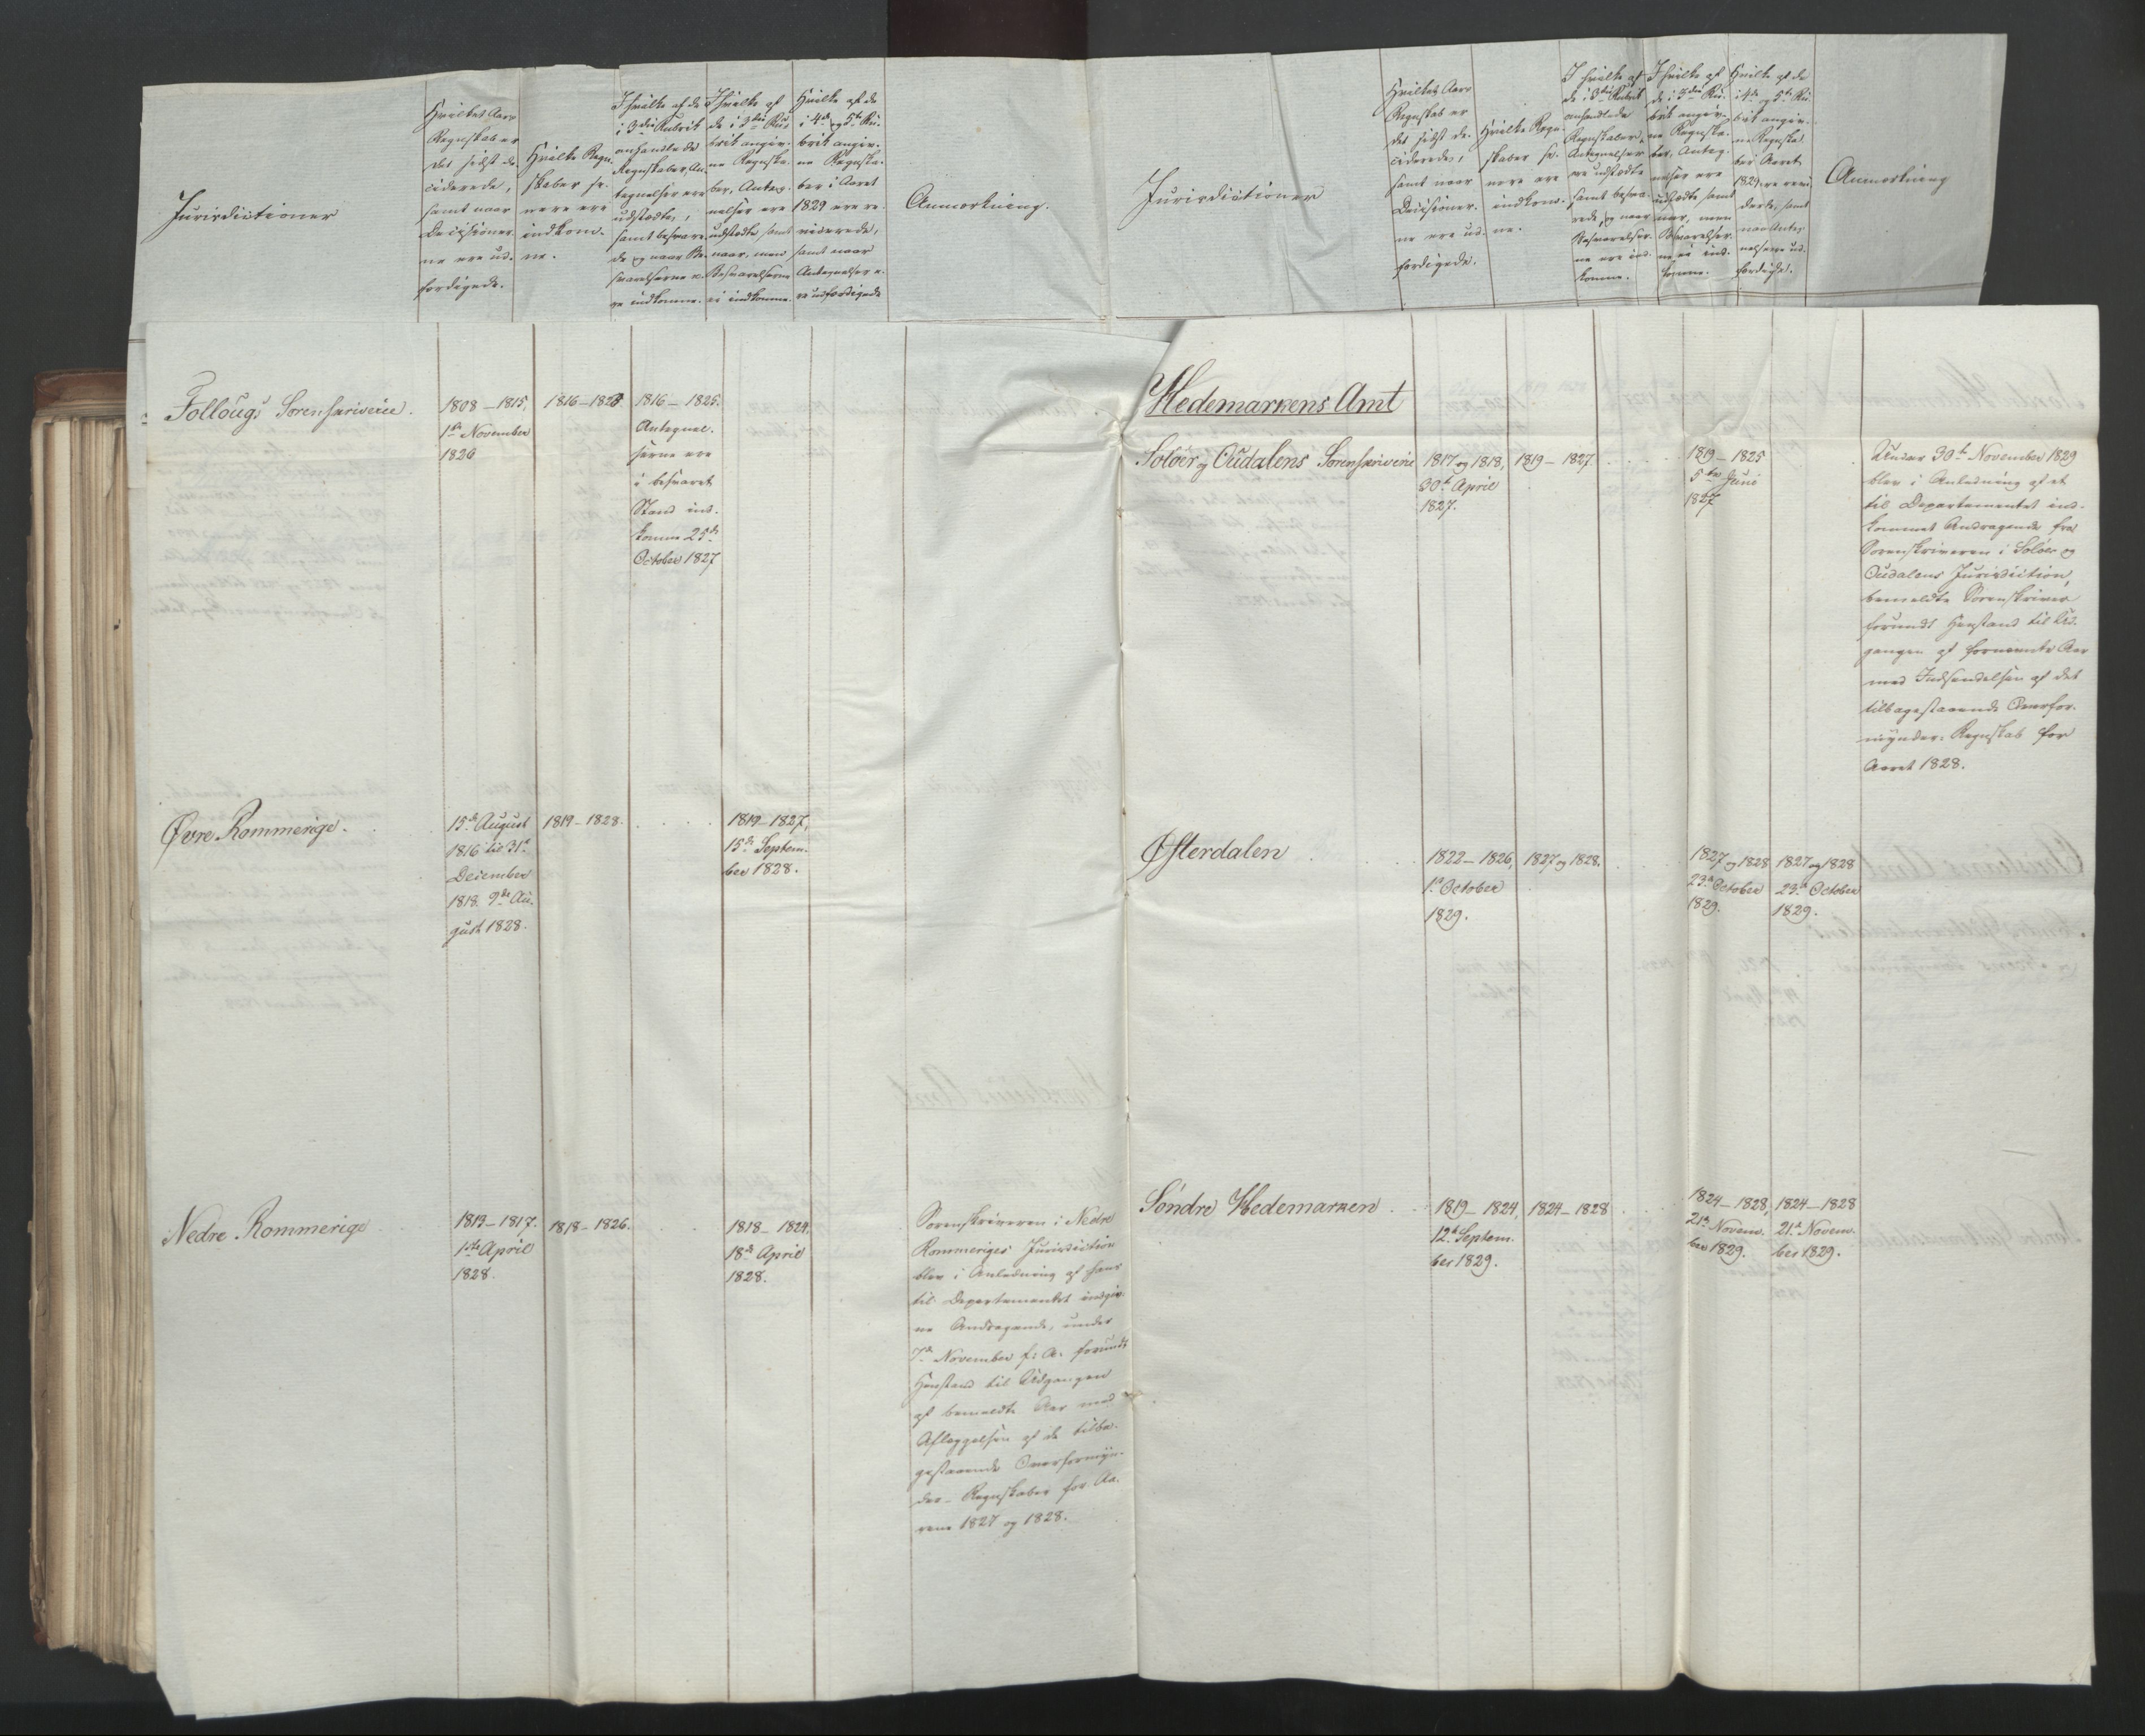 Jurisdictioner
Hvilket Aars
Regnskab er
det sidst de-
ciderede,
samt naar
Decisioner-
ne ere ud-
færdigede.
Hvilke Regn-
skaber se-
nere ere
indkom-
ne.
I hvilke af de
i 3die Rubrik
anførte
Regnskaber, An-
tegnelser ere
udstædte,
samt besvare-
de og naar Be-
svarelserne e-
re indkomne.
I hvilke af
de i 3die Ru-
brik angiv-
ne Regnska-
ber, Anteg-
nelser ere
udstædte samt
naar, men
Besvarelserne
ei indkomne.
Hvilke af de
i 4de og 5te Ru-
brik angiv-
ne Regnska-
ber i Aaret
1829 ere re-
viderede,
samt naar
Antegnelser e-
re udfærdigede
Anmærkning.
Follougs Sorenskriverie.
1808 – 1815,
1ste November
1826
1816 – 1828
1816 – 1825.
Antegnel-
serne ere
i besvaret
Stand ind-
komne 25de
October 1827
Øvre Rommerige.
15de August
1816 til 31te
December
1818. 9de Au-
gust 1828.
1819 – 1828.
1819 – 1827,
15de Septem-
ber 1828.
Nedre Rommerige
1813 – 1817.
1ste April
1828.
1818 – 1826.
1818 – 1824,
18de April
1828.
Sorenskriveren i Nedre
Rommeriges Jurisdiction
blev i Anledning af hans
til Departementet indgiv-
ne Andragende, under
7de November f: A. forundt
Henstand til Udgangen
af bemeldte Aar med
Aflæggelsen af de tilba-
gestaaende Overformyn-
der-Regnskaber for Aa-
rene 1827 og 1828.
Jurisdictioner
Hvilket Aars
Regnskab er
det sidst de-
ciderede,
samt naar
Decisioner-
ne ere ud-
færdigede.
Hvilke Regn-
skaber se-
nere ere
indkom-
ne.
I hvilke af
de i 3die Rubrik
anførte
Regnskaber,
Antegnelser
ere udstædte
samt besva-
rede, og naar
Besvarelser-
ne ere ind-
komne.
I hvilke af
de i 3die Ru-
brik angiv-
ne Regnska-
ber, Anteg-
nelser ere
udstædte samt
naar, men
Besvarelser-
ne ei ind-
komne.
Hvilke af de
i 4de og 5te Ru-
brik angiv-
ne Regnska-
ber i Aaret
1829 ere revi-
derede, samt
naar Anteg-
nelserne ud-
færdiget.
Anmærkning
Hedemarkens Amt
Soløer og Oudalens Sorenskriverie
1817 og 1818,
30te April
1827.
1819 – 1827.
1819 – 1825
5te Juni
1827
Under 30te November 1829
blev i Anledning af et
til Departementet ind-
kommet Andragende fra
Sorenskriveren i Soløer og
Oudalens Jurisdiction,
bemeldte Sorenskriver
forundt Henstand til Ud-
gangen af fornævnte Aar
med Indsendelsen af det
tilbagestaaende Overfor-
mynder-Regnskab for
Aaret 1828.
Østerdalen
1822 – 1826,
1ste October
1829.
1827 og 1828.
1827 og 1828
23de October
1829.
1827 og 1828
23de October
1829.
Søndre Hedemarken
1819 – 1824,
12te Septem-
ber 1829.
1824 – 1828
1824 – 1828,
21de Novem-
ber 1829.
1824 – 1828
21de Novem-
ber 1829.